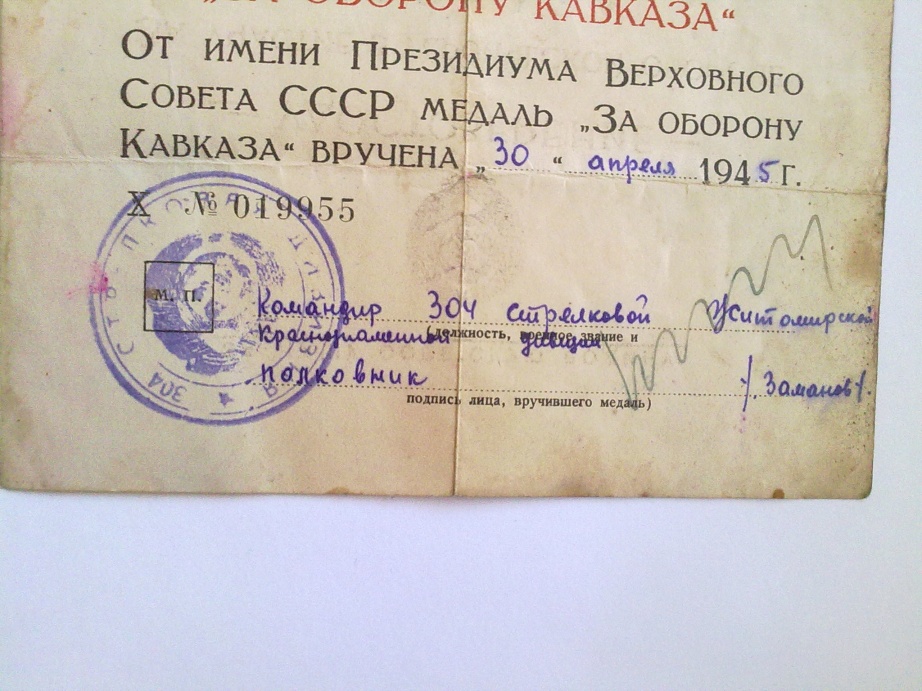 „ЗА ОБОРОНУ КАВКАЗА“
ОТ ИМЕНИ ПРЕЗИДИУМА ВЕРХОВНОГО
СОВЕТА СССР МЕДАЛЬ „ЗА ОБОРОНУ
КАВКАЗА“ ВРУЧЕНА „30“ апреля 1945 г.
Х № 019955
304 СТРЕЛКОВАЯ ДИВИЗИЯ
М. П.
Командир 304 стрелковой Житомирской
(должность, военное звание и
Краснознаменной дивизии
полковник /Заманов/
подпись лица, вручившего медаль)